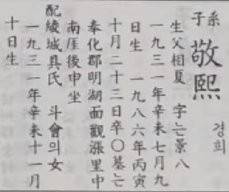 系子 敬熙 경희
生父相夏 字는景八
一九三一年辛未七月九
日生 一九八六年丙寅
十月二十三日卒○墓는
奉化郡明湖面觀漲里中
南厓後申坐
配綾城具氏 斗會의女
一九三一年辛未十一月
十日生